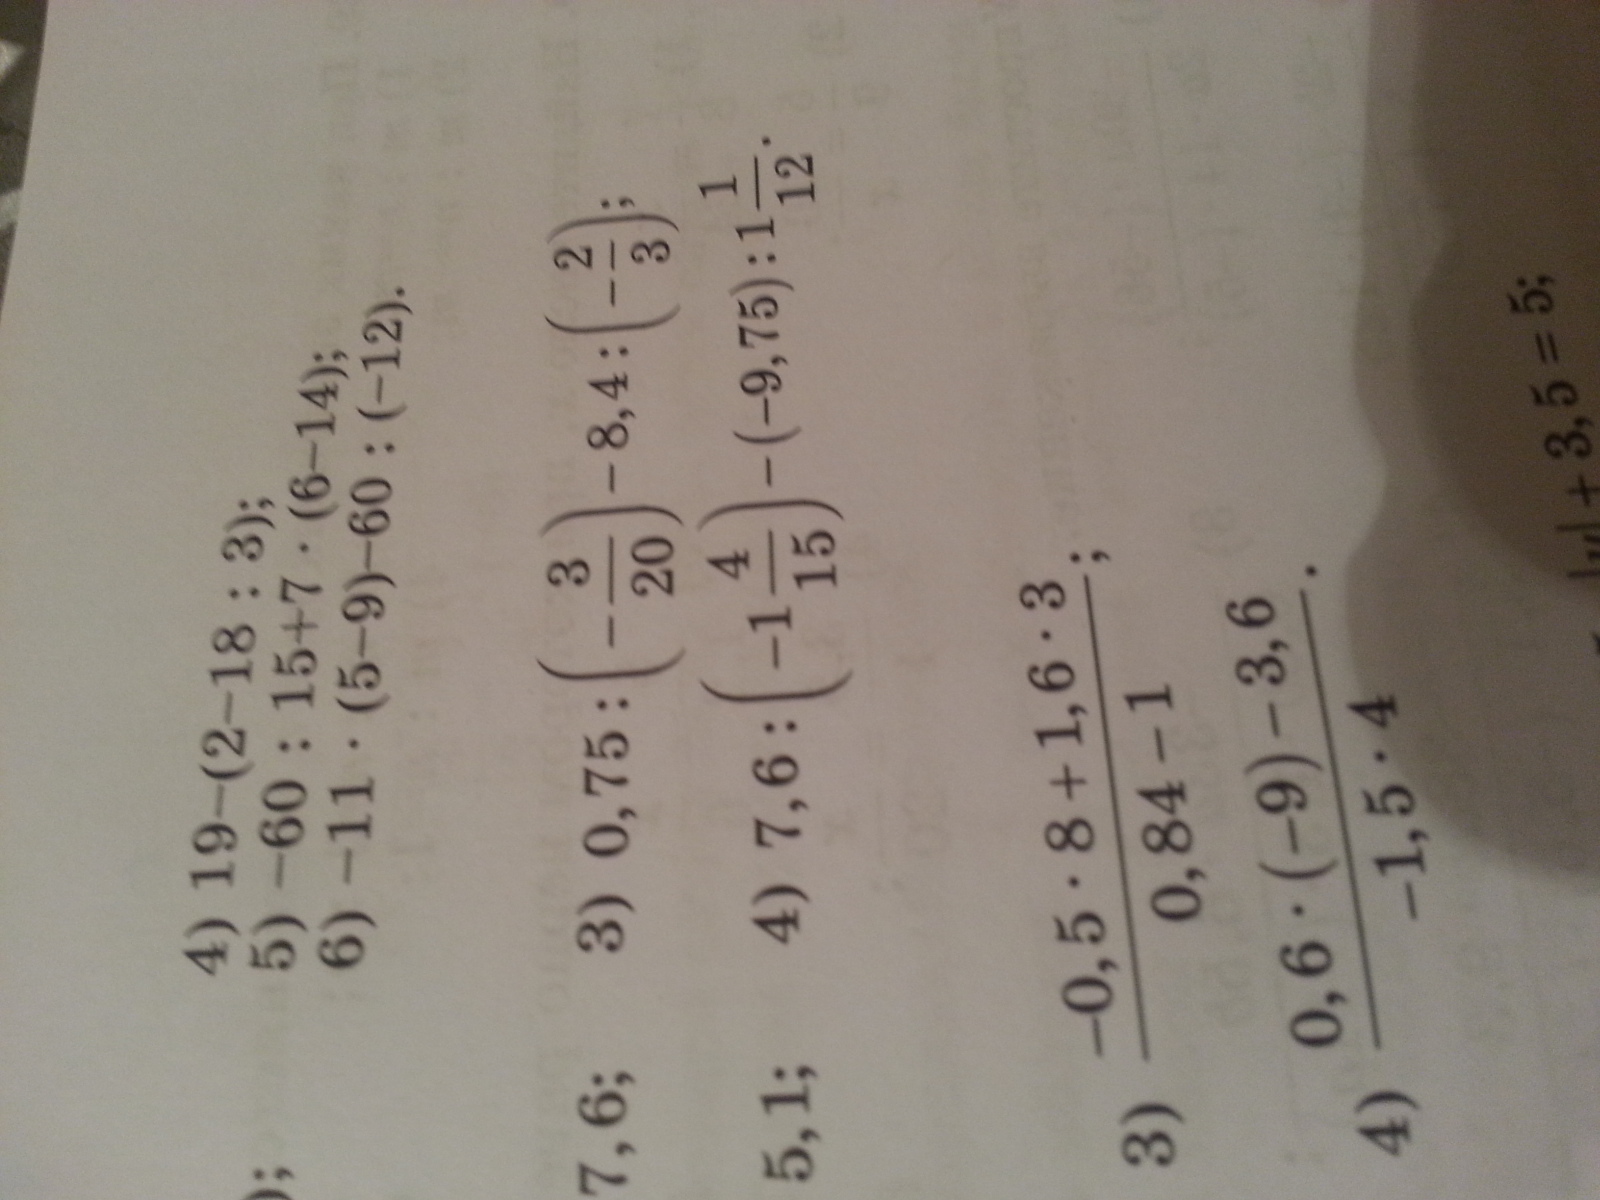 );
4) 19−(2−18 : 3);
5) −60 : 15+7 · (6−14);
6) −11 · (5−9)−60 : (−12).
7,6; 3) 0,75 : (−3/20) − 8,4 : (−2/3);
5,1; 4) 7,6 : (−1 4/15) − (−9,75) : 1 1/12.
3) (−0,5 · 8 + 1,6 · 3)/(0,84 − 1);
4) (0,6 · (−9) − 3,6)/(−1,5 · 4).
|y| + 3,5 = 5;